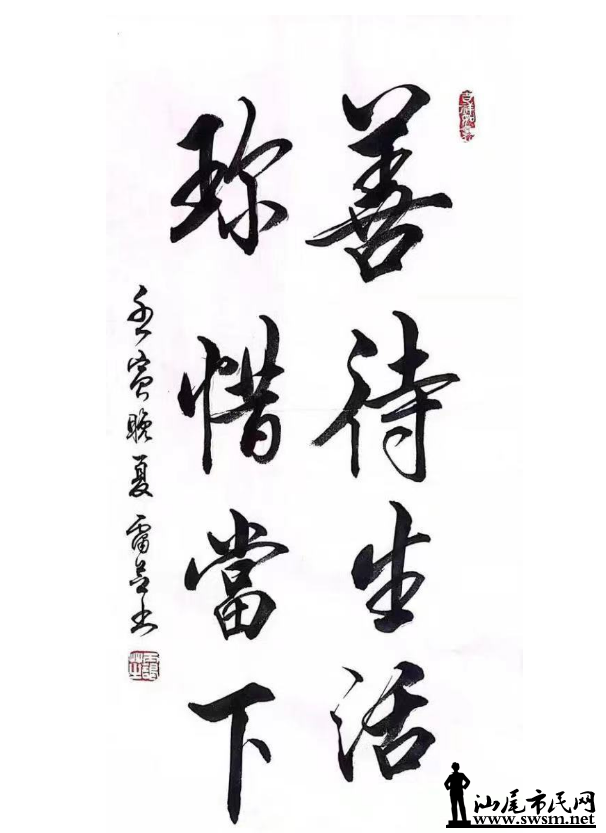 善待生活
珍惜當下
壬寅晚夏雷
汕尾市民网
www.swsm.net